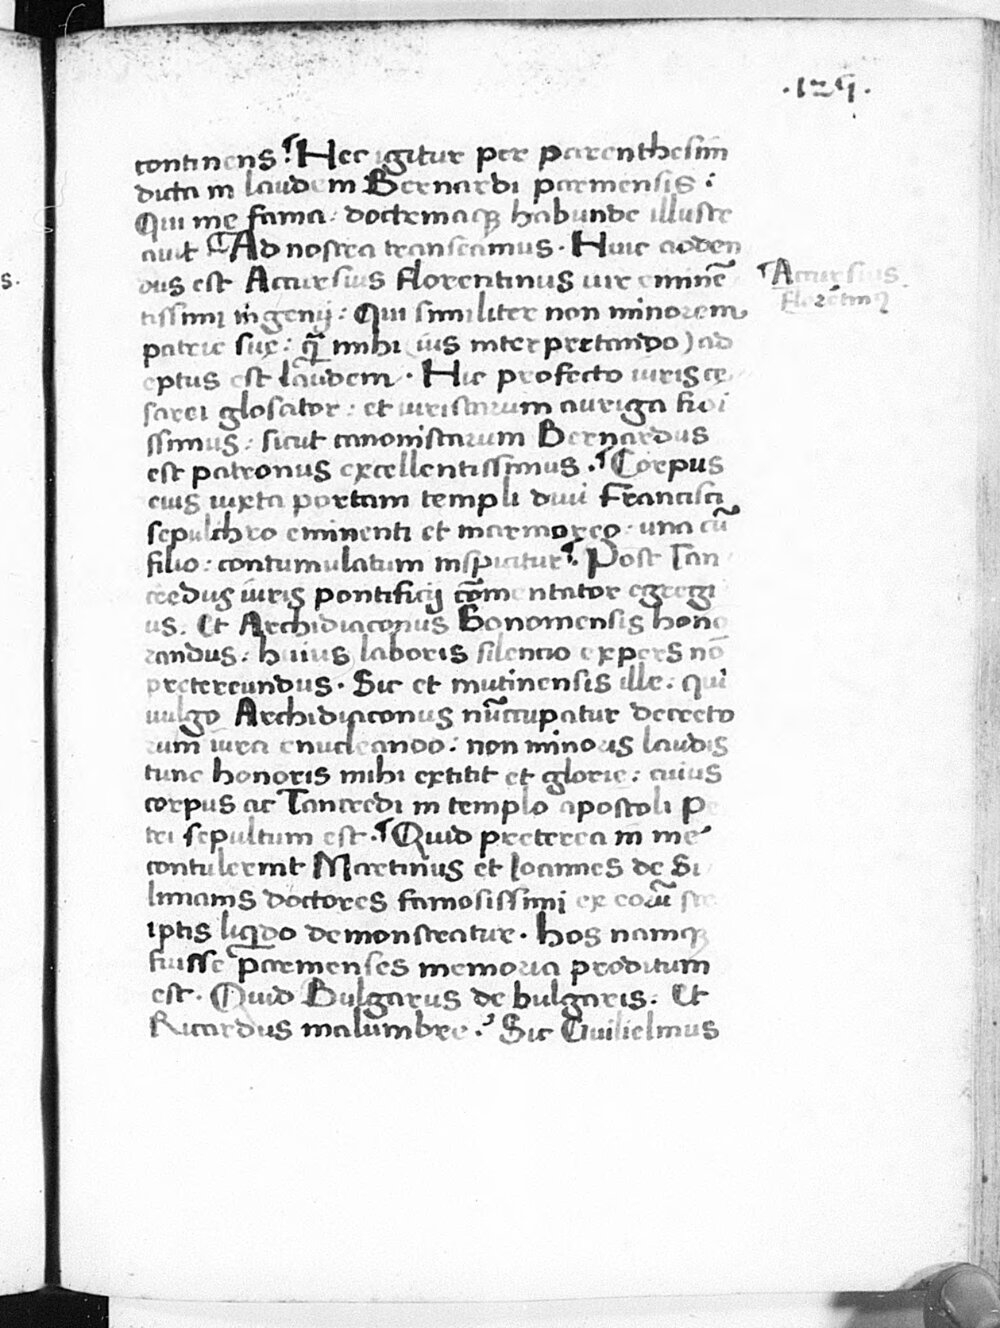 .125.
continens. ¶Hec igitur per parenthesim
dicta in laudem Bernardi parmensis:
Qui me fama: doctrinaqꝫ habunde illustr
auit ¶Ad nostra transeamus. Huic adden
dus est Accursius florentinus uir eminẽ
tissimi ingenij: Qui similiter non minorem
patrie sue: q̃ mihi (ius interpretando) ad
eptus est laudem. Hic profecto iuris ce
sarei glosator: et iuristarum auriga fidi
ssimus: sicut canonistarum Bernardus
est patronus excellentissimus. ¶Corpus
eius iuxta portam templi diui Francisci
sepulchro eminenti et marmoreo: una cũ
filio: contumulatum inspicitur. ¶Post Tan
credus iuris pontificij cõmentator egregi
us. Et Archidiaconus Bononiensis hono
randus: huius laboris silentio expers nõ
pretereundus. Sic et mutinensis ille: qui
uulgo Archidiaconus nũccupatur decreto
rum iura enucleando: non minoris laudis
tunc honoris mihi extitit et glorie: cuius
corpus ac Tancredi in templo apostoli Pe
tri sepultum est. ¶Quid preterea in me
contulerint Martinus et Ioannes de Si
limanis doctores famosissimi ex eorũ scr
iptis liquido demonstratur. hos namqꝫ
fuisse parmenses memoria proditum
est. Quid Bulgarus de bulgaris: Et
Ricardus malumbre. Sic Guilielmus
¶Accursius
florẽtinꝰ.
s.